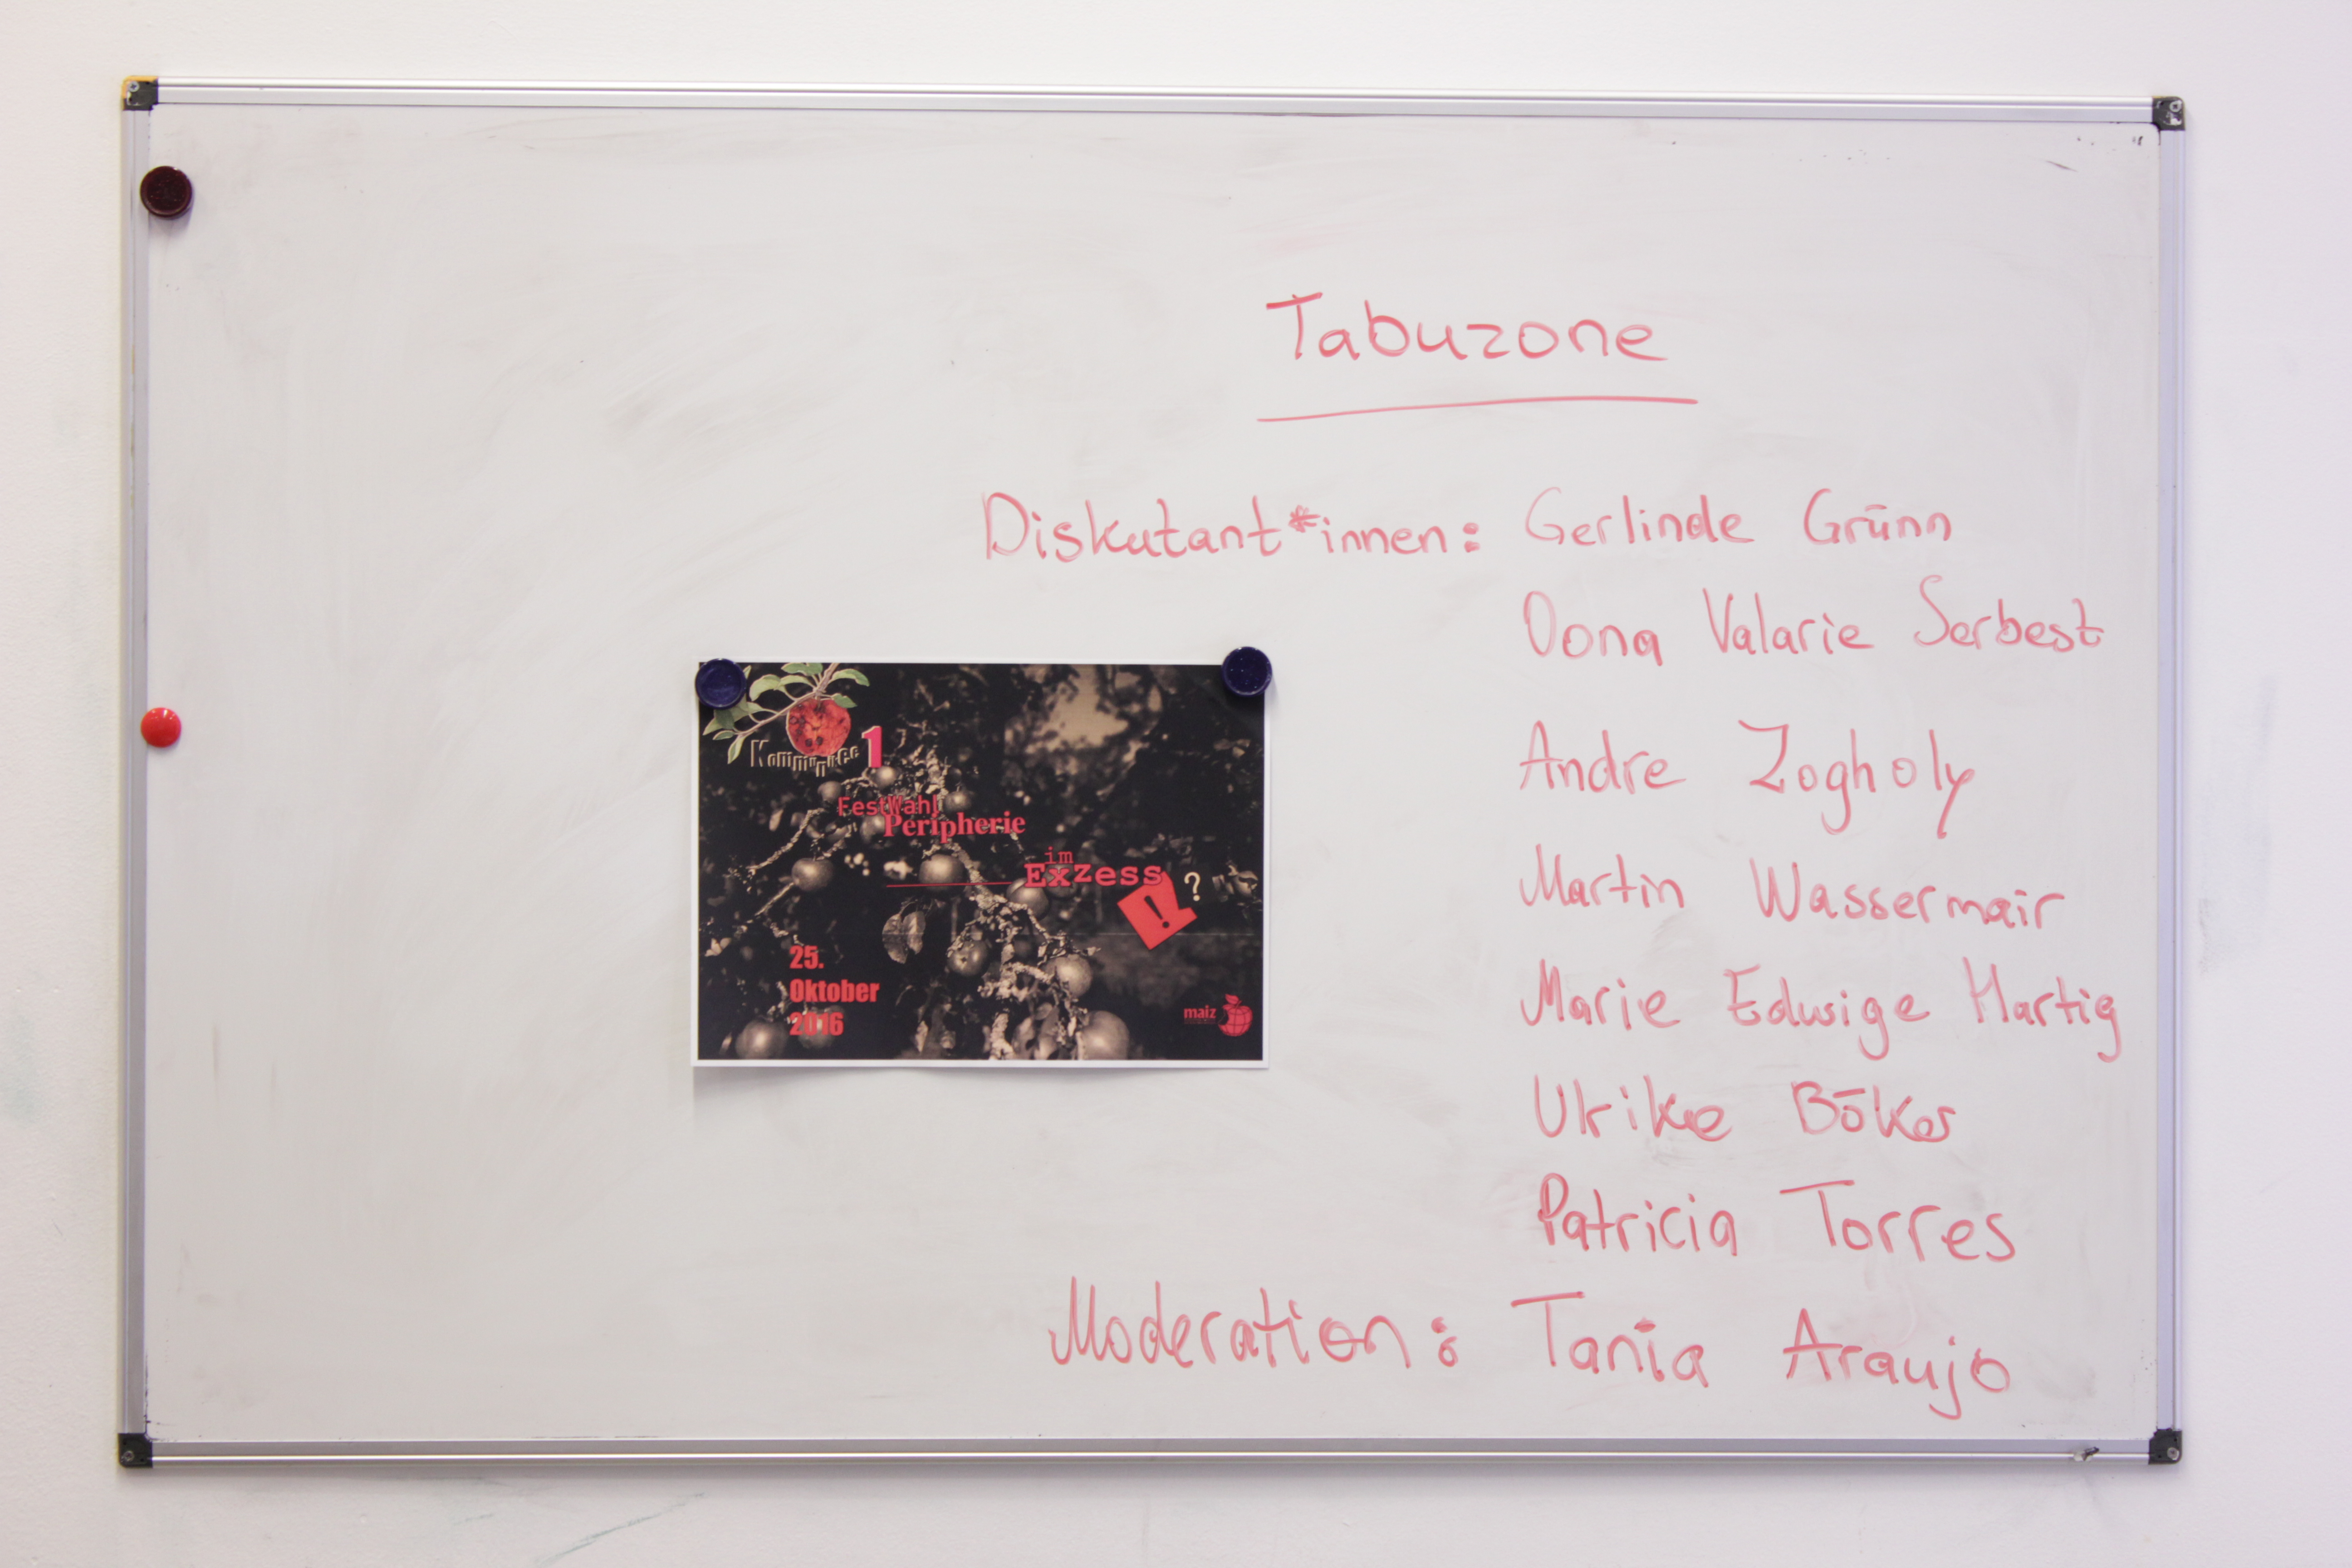 Tabuzone
Diskutant*innen: Gerlinde Grünn
Oona Valarie Serbest
Andre Zogholy
Martin Wassermair
Marie Edwige Hartig
Ulrike Böker
Patricia Torres
Moderation: Tania Araujo
1
FestWahl
Peripherie
im
Exzess
!?
25.
Oktober
2016
maiz